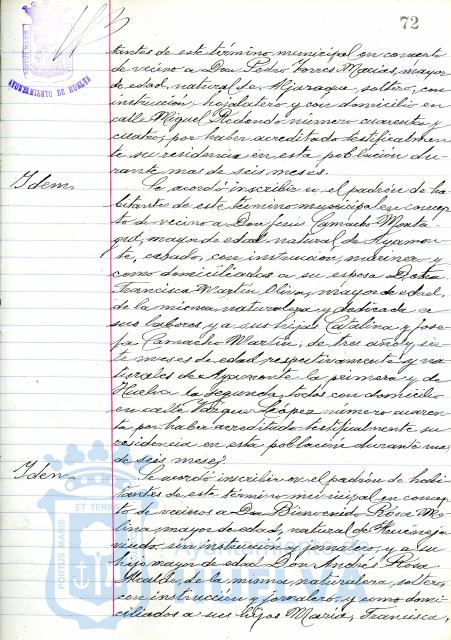 72
AYUNTAMIENTO DE HUELVA
tantes de este término municipal en concepto
de vecino a Don Pedro Torres Macias, mayor
de edad, natural de Aljaraque, soltero, con
instrucción, hojalatero y con domicilio en
calle Miguel Redondo número cuarenta y
cuatro, por haber acreditado testificalmen-
te su residencia en esta población du-
rante mas de seis meses.
Idem.
Se acordó inscribir en el padrón de ha-
bitantes de este término municipal en concep-
to de vecino a Don José Camacho
mayor de edad natural de Ayamon-
te, casado, con instrucción, marinero y
como domiciliadas a su esposa Doña
Francisca Martín Oliva, mayor de edad,
de la misma naturaleza y dedicada a
sus labores y a sus hijas Catalina y Jose-
fa Camacho Martín, de tres años y sie-
te meses de edad respectivamente y na-
turales de Ayamonte la primera y de
Huelva la segunda, todos con domicilio
en calle Vázquez López número cuaren-
ta por haber acreditado testificalmente su
residencia en esta población durante mas
de seis meses.
Idem.
Se acordó inscribir en el padrón de habi-
tantes de este término municipal en concep-
to de vecinos a Don Bienvenido Rosa Mo-
lina, mayor de edad, natural de
viudo, sin instrucción y jornalero, y a su
hijo mayor de edad Don Andrés Rosa
de la misma naturaleza, soltero,
con instrucción y jornalero, y como domi-
ciliados a sus hijos María, Francisca,
PORTUS MARIS ET TERRAE